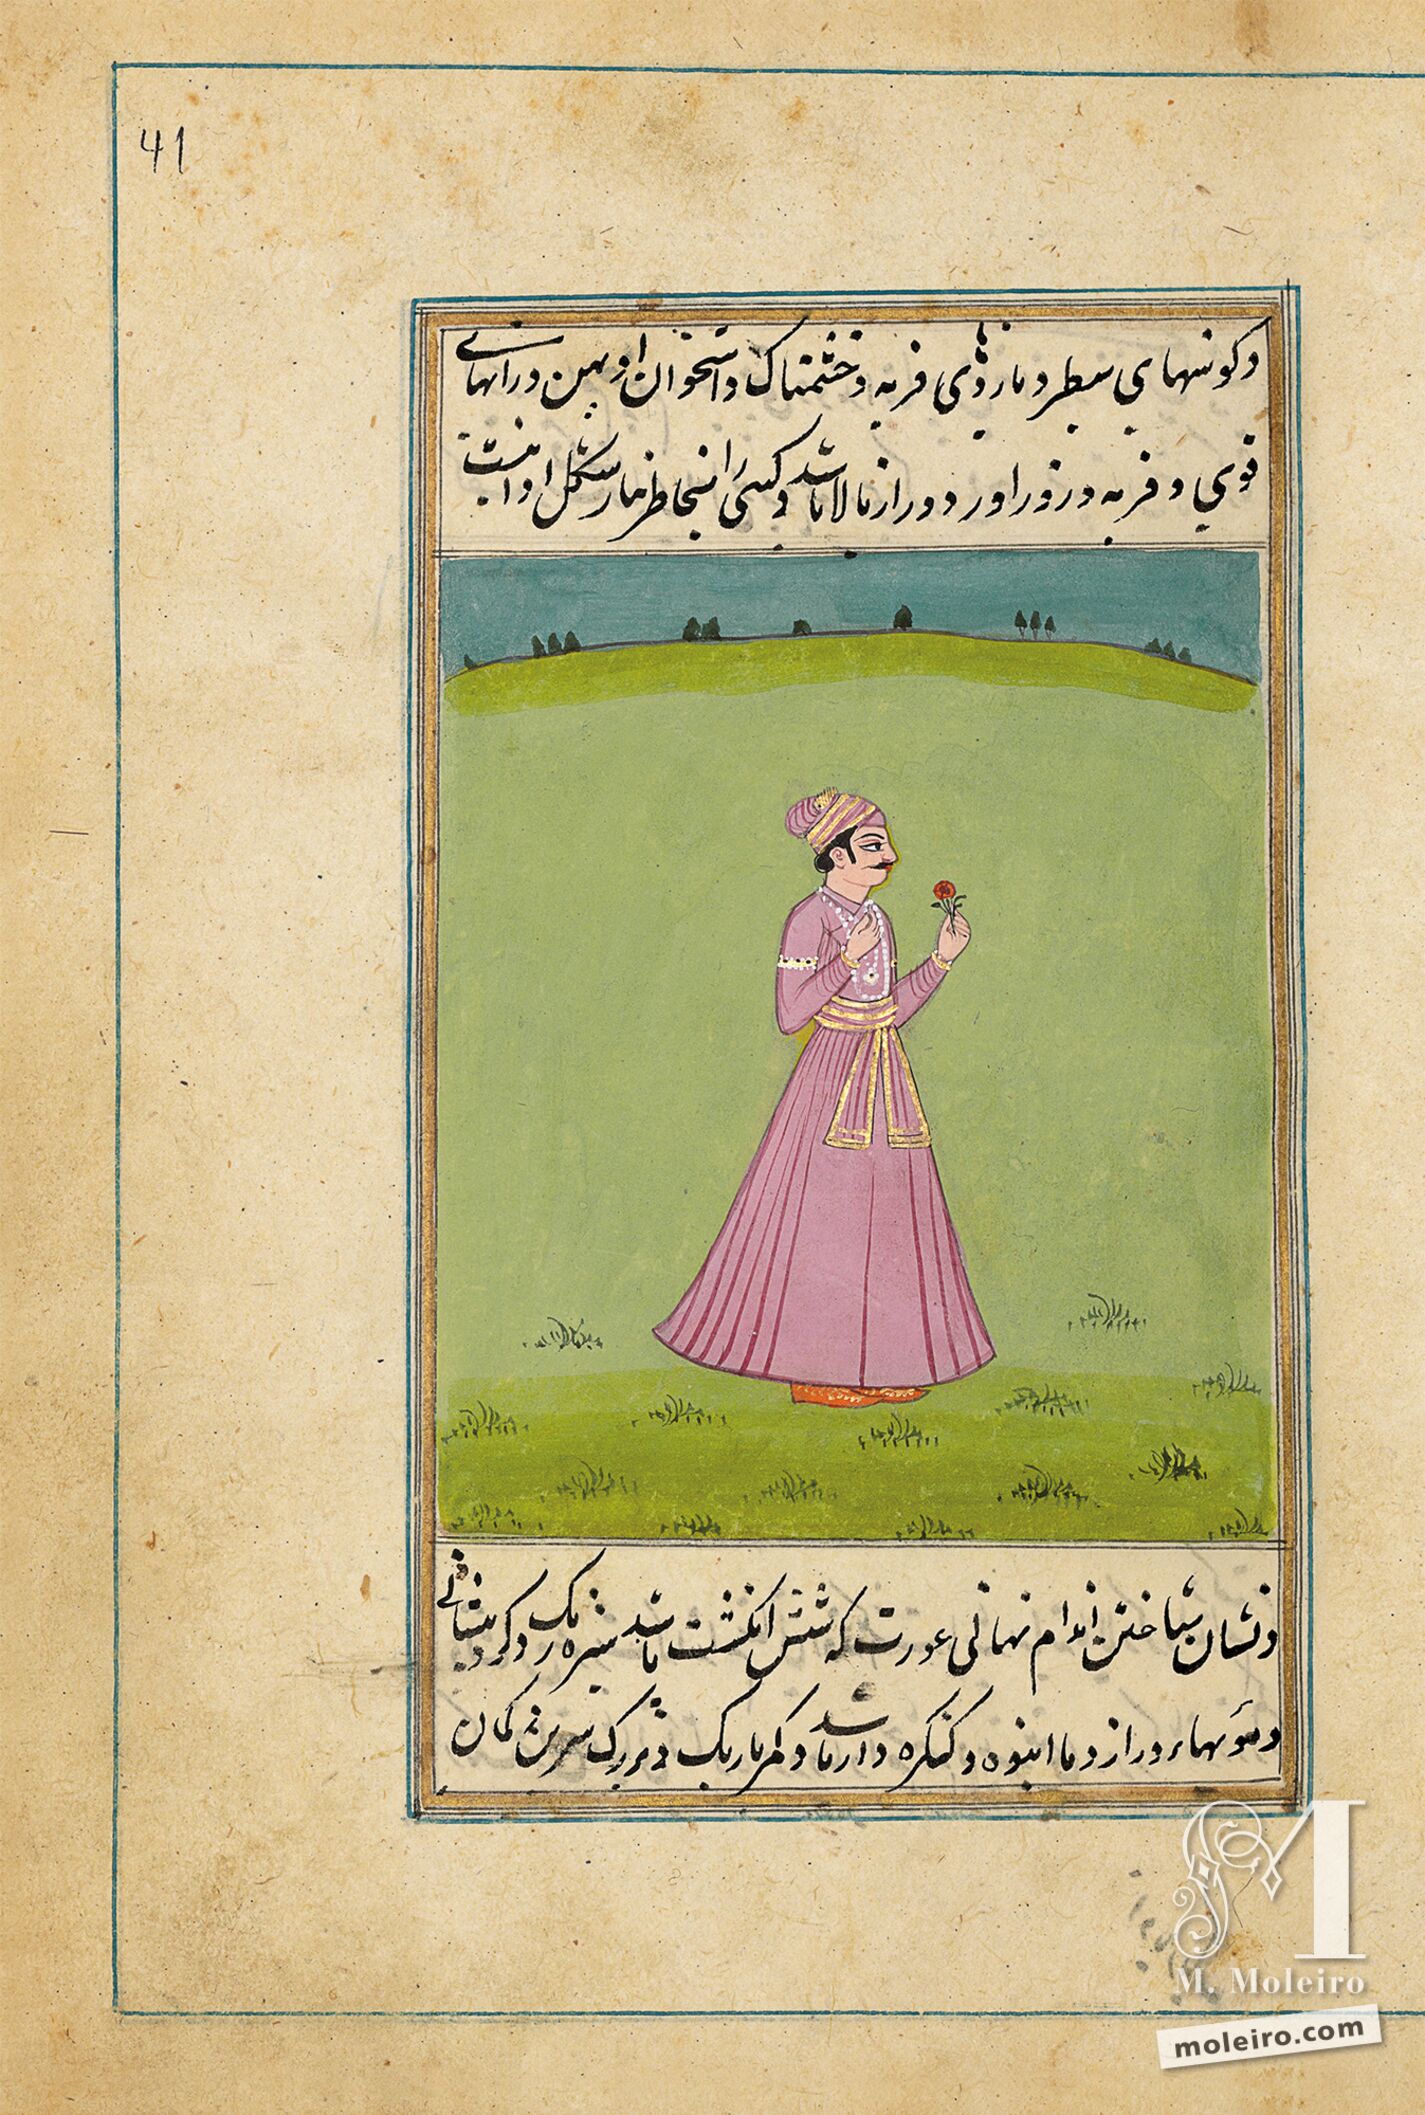 41
و گوشهای سطبر و بازوهای فربه و خشمناک و استخوان او پهن و رانهای
قوی و فربه و زور اور و دراز بالا باشد و کسی را بخاطر نیارد شکل او اینست
و نشان شناختن اندام نهانی عورت که شش انکشت باشد شیره رنک و کرد پیشانی
و مویهاء دراز و با انبوه و کنکره دار باشد و کمر باریک و بزرک سرین کمان
M. Moleiro
moleiro.com